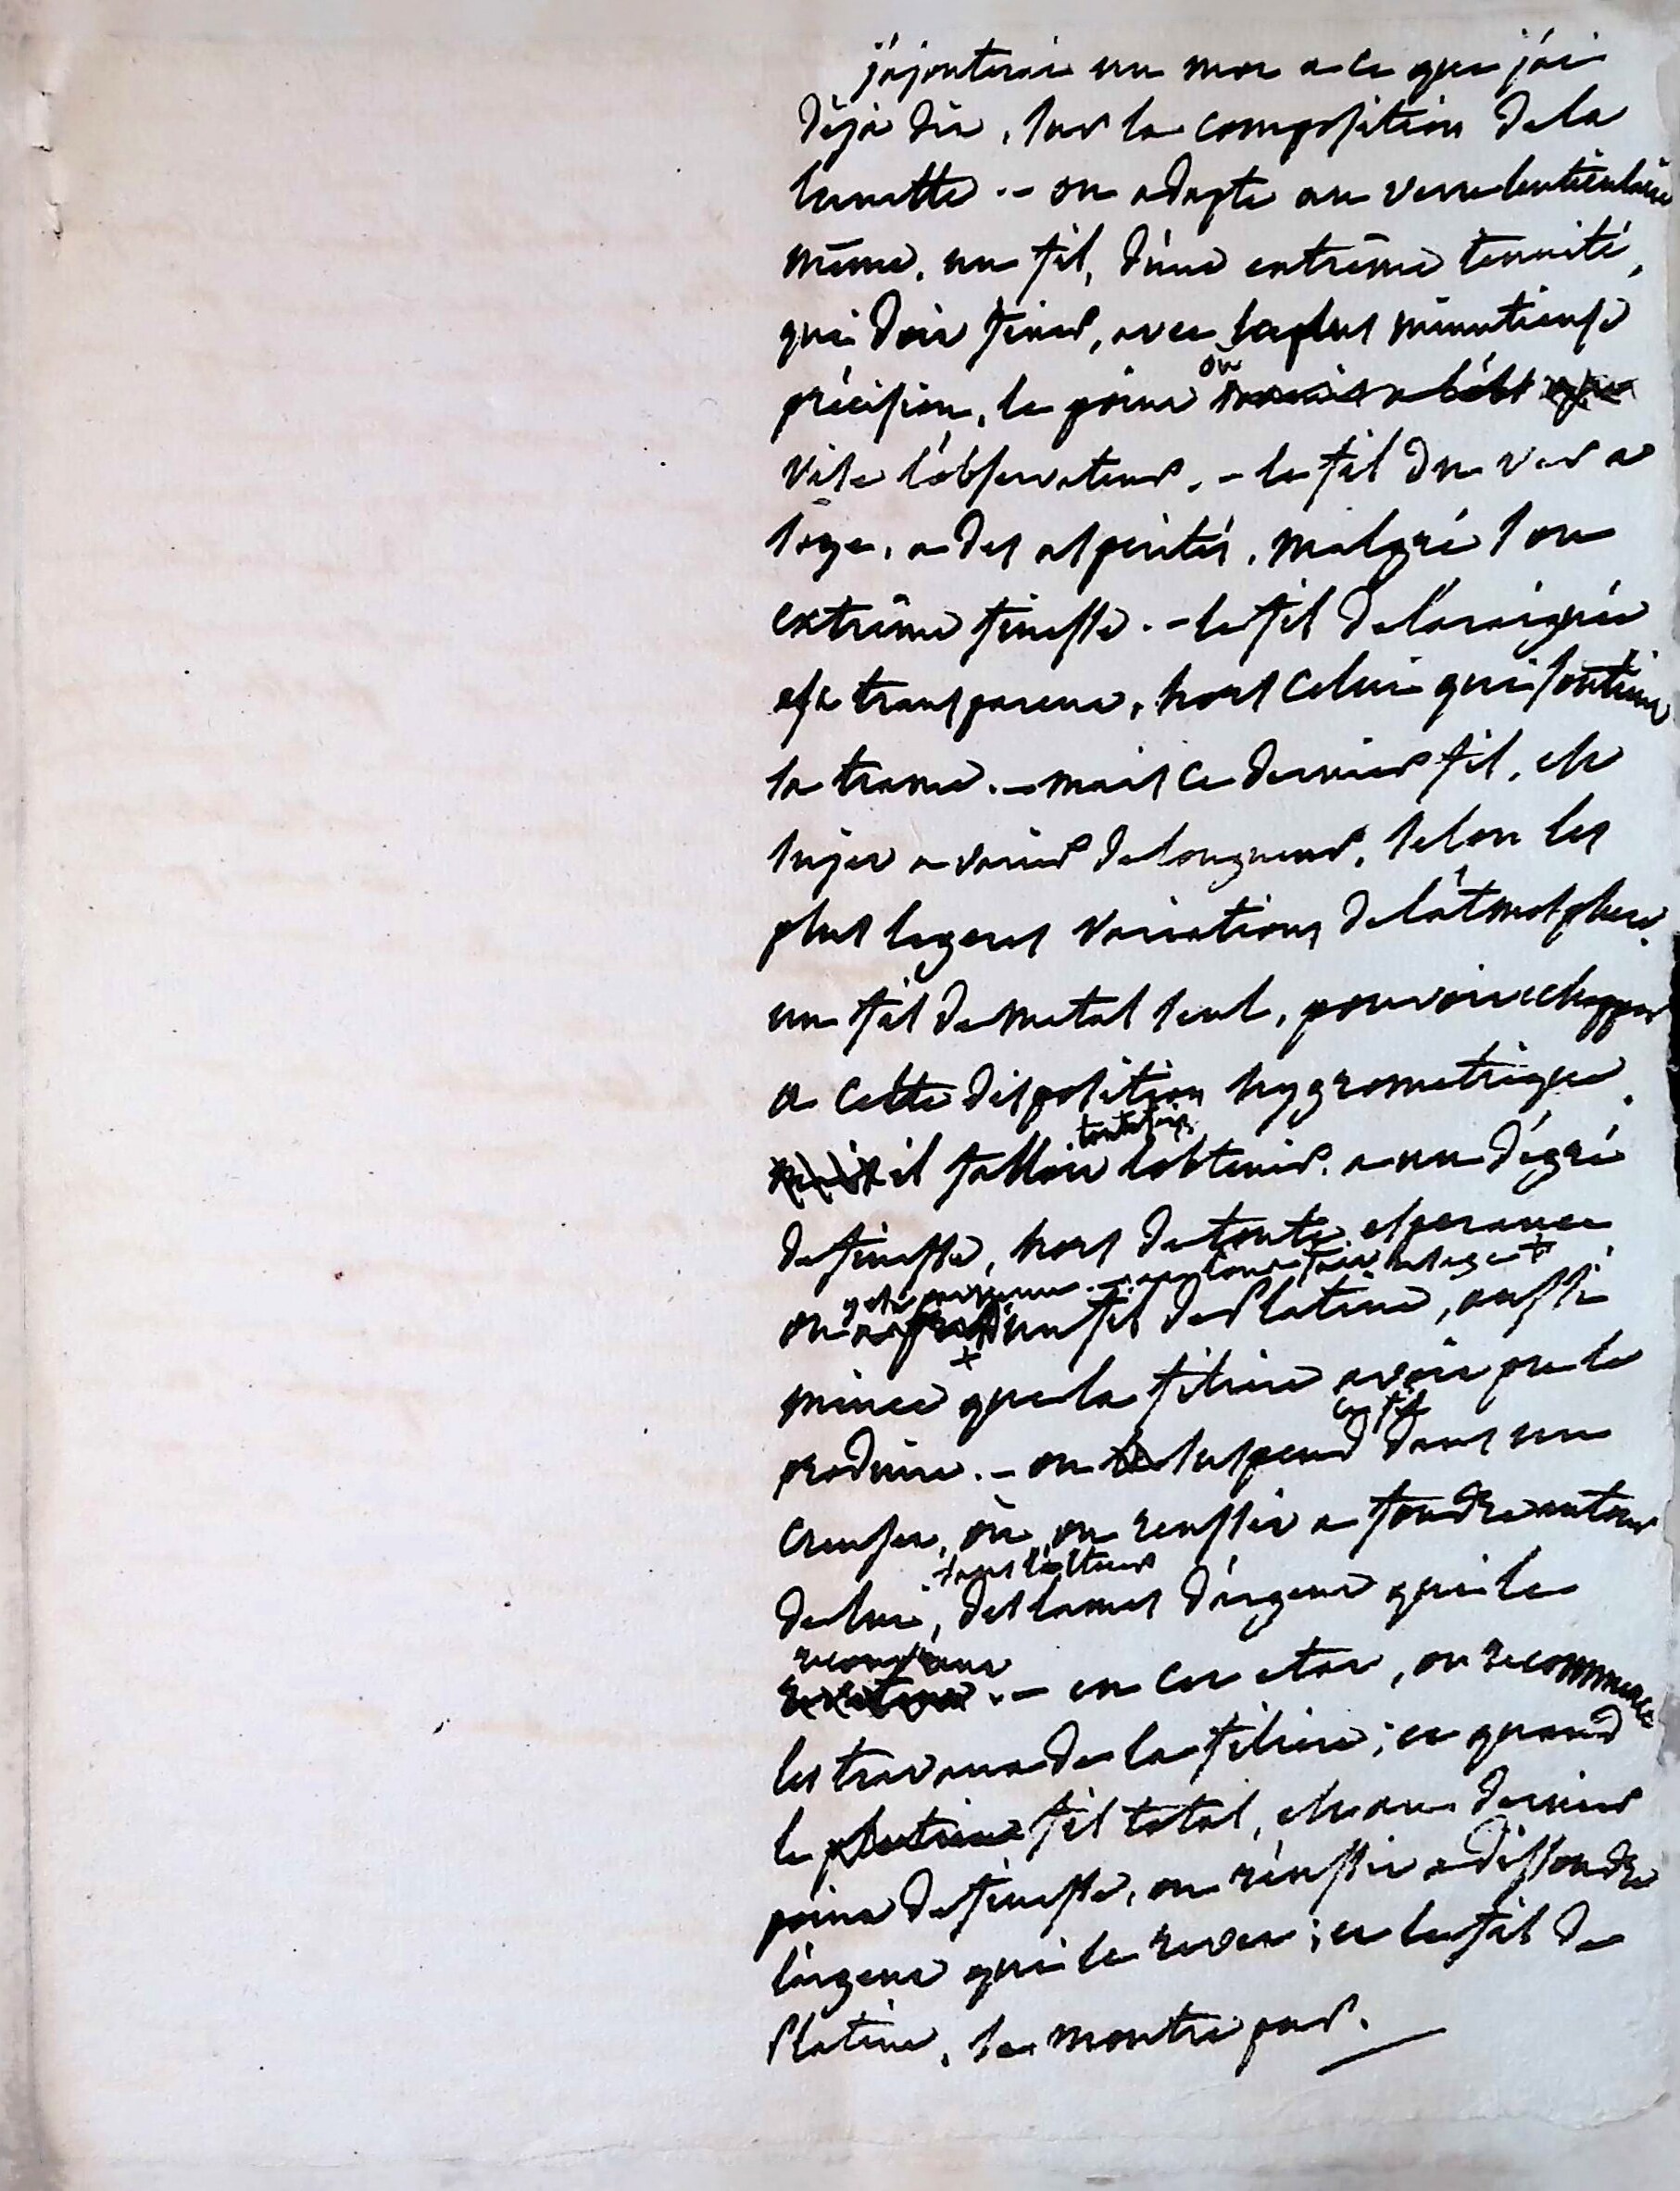 j'ajouterai un mot a ce que j'ai
déja dit, sur la composition de la
lunette. – on adapte au verre lenticulaire
même, un fil, d'une extrême tenuité,
qui doit fixer, avec la plus minutieuse
précision, le point où
vise l'observateur. – le fil du ver a
soye, a des asperités, malgré son
extrême finesse. – le fil de l'araignée
est transparent, hors celui qui soutient
la trame. – mais ce dernier fil, est
sujet a varier de longueur, selon les
plus legeres variations de l'atmosphere.
un fil de metal seul, pouvoit echapper
a cette disposition hygrometrique.
toutefois
il falloit l'obtenir, a un dégré
de finesse, hors de toute esperance
y est parvenu
on un fil de Platine, aussi
mince que la filiere avoit pu le
ce fil
produire. – on suspend dans un
creuset, où, on reussit a fondre autour
de lui, des lames d'argent qui le
– en cet etat, on recommence
les travaux de la filiere; et quand
le platine fil total, est au dernier
point de finesse, on réussit a dissoudre
l'argent qui le revet; et le fil de
Platine, se montre pur.